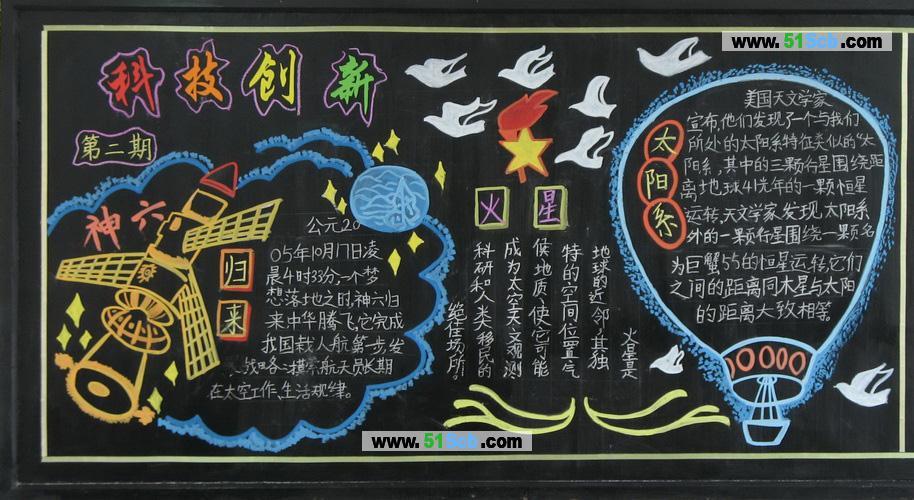 www.51Scb.com
科技创新
第二期
神六
归来
公元20
05年10月17日凌
晨4时33分,一个梦
想落地之时,神六归
来中华腾飞,它完成
我国载人航第步发
航天员长期
在太空工作、生活规律。
火星
火星是
地球的近邻,其独
特的空间位置气
候地质,使它可能
成为太空天文观测
科研和人类移民的
绝佳场所。
太阳系
美国天文学家
宣布,他们发现了一个与我们
所处的太阳系特征类似的“太
阳系,其中的三颗行星围绕距
离地球41光年的一颗恒星
运转,天文学家发现,太阳系
外的一颗行星围绕一颗名
为巨蟹55的恒星运转,它们
之间的距离同木星与太阳
的距离大致相等。
www.51Scb.com